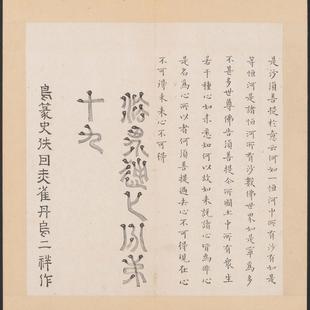 是沙須菩提於意云何如一恒河中所有沙有如是
等恒河是諸恒河所有沙數佛世界如是寧為多
不甚多世尊佛告須菩提尒所國土中所有眾生
若干種心如來悉知何以故如來說諸心皆為非心
是名為心所以者何須菩提過去心不可得現在心
不可得未來心不可得
法界通化分第
十九
鳥篆史佚囙赤雀丹烏二祥作